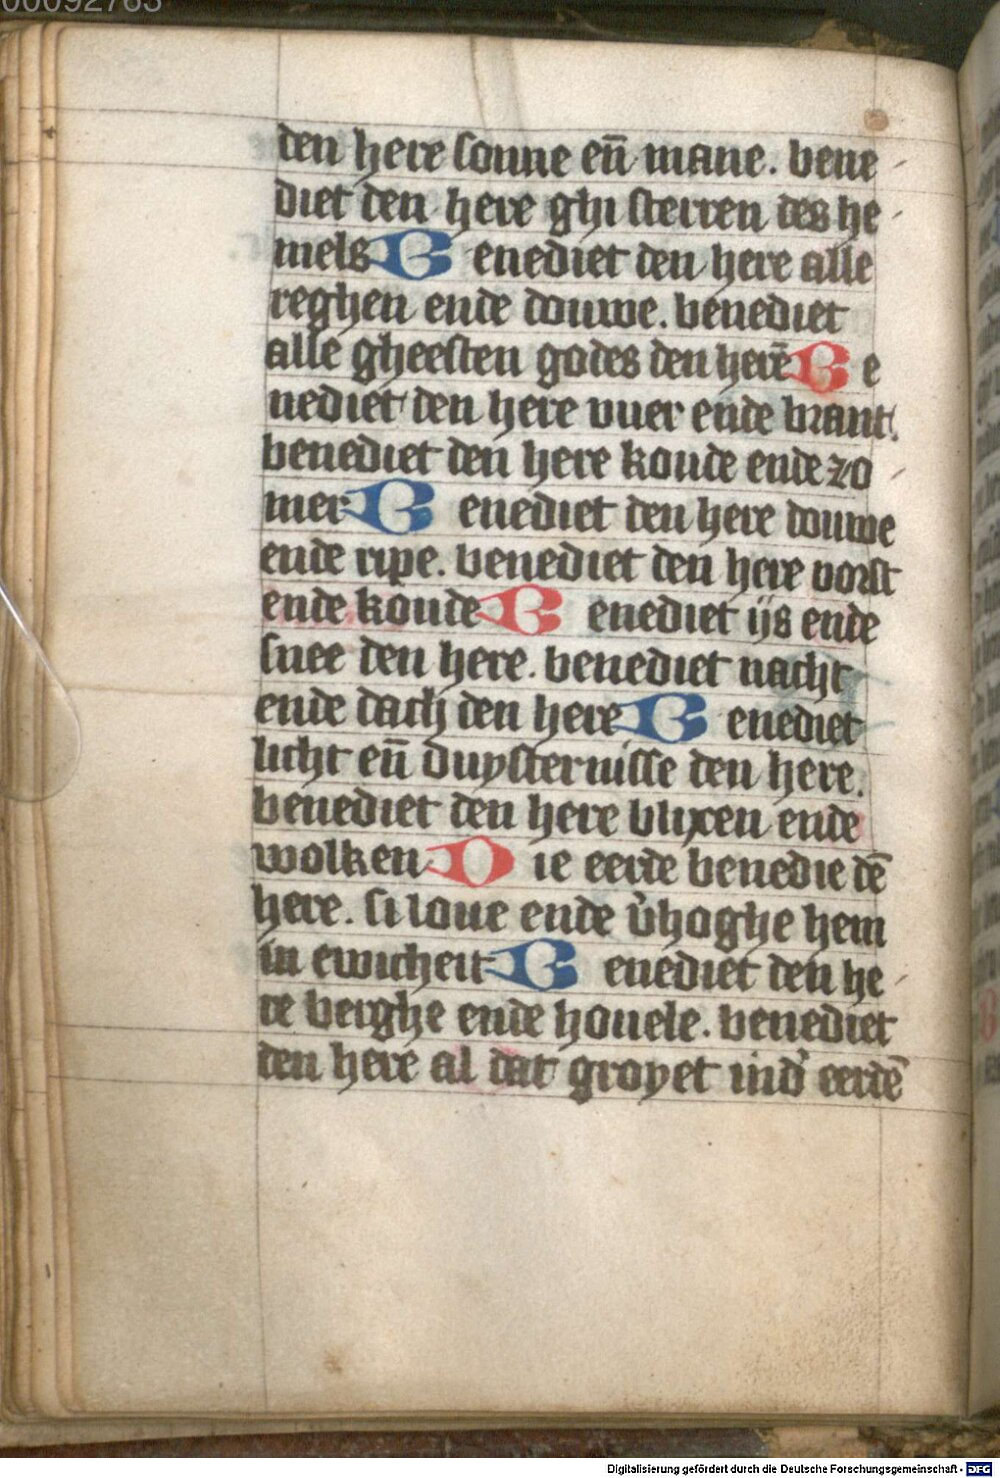 00092763
den here sonne en̄ mane. bene-
diet den here ghi sterren des he-
mels Benediet den here alle
reghen ende douwe. benediet
alle gheesten godes den herē Be
nediet den here vuer ende brant.
benediet den here koude ende zo-
mer Benediet den here douwe
ende ripe. benediet den here vorst
ende koude Benediet ijs ende
snee den here. benediet nacht
ende dach den here Benediet
licht en̄ duysternisse den here.
benediet den here blixen ende
wolken Die eerde benedie dē
here. si loue ende v̓hoghe hem
in ewicheit Benediet den he-
re berghe ende houele. benediet
den here al dat groyet ind̓ eerdē
Digitalisierung gefördert durch die Deutsche Forschungsgemeinschaft - DFG